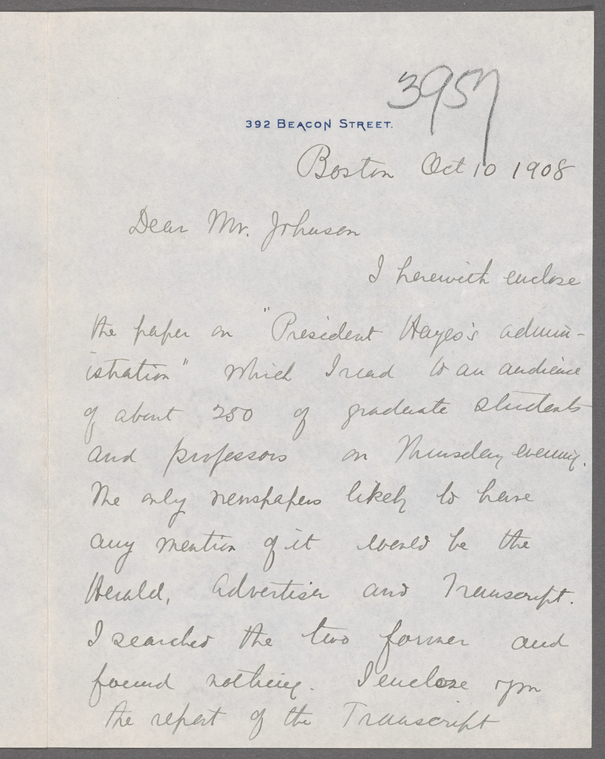 3957
392 BEACON STREET.
Boston Oct 10 1908
Dear Mr. Johnson
I herewith enclose
the paper on "President Hayes's admin-
istration" which I read to an audience
of about 250 of graduate students
and professors on Thursday evening.
The only newspapers likely to have
any mention of it would be the
Herald, Advertiser and Transcript.
I searched the two former and
found nothing. I enclose you
the report of the Transcript